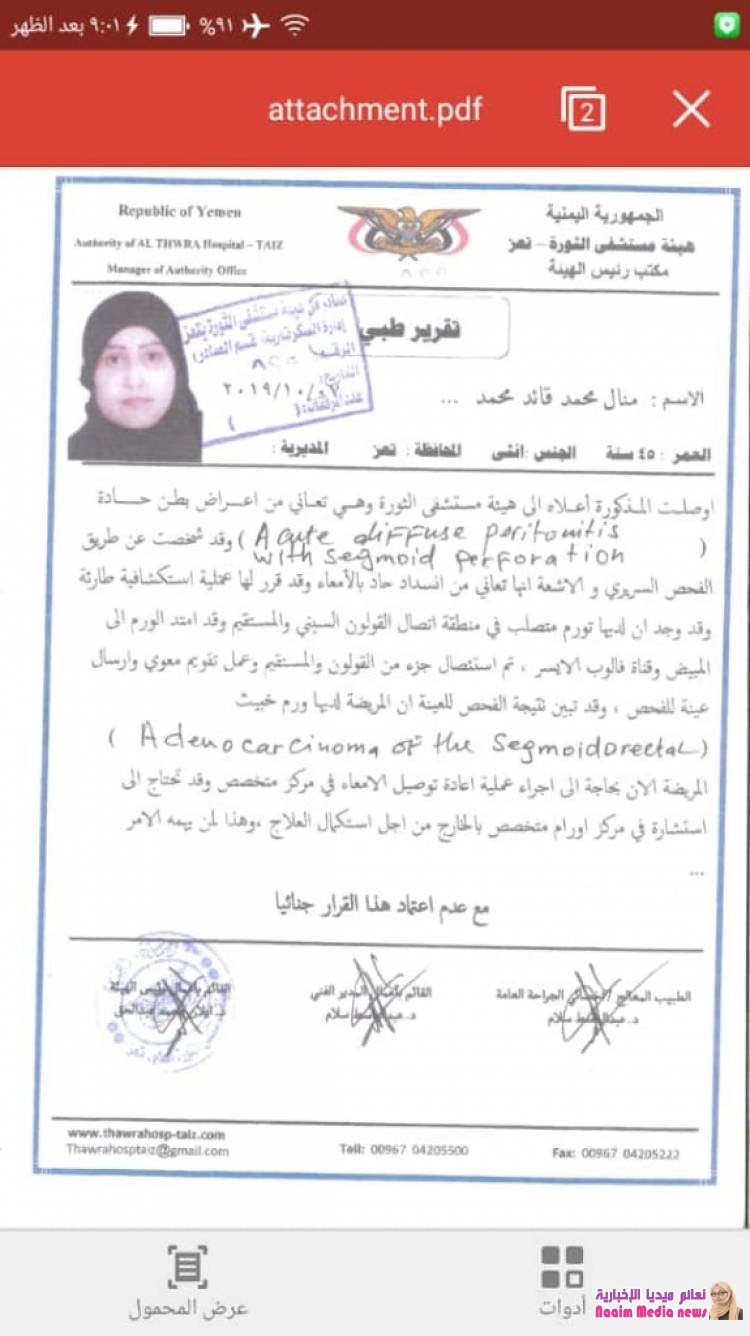 ٩:٠١ بعد الظهر
%٩١
attachment.pdf
2
Republic of Yemen
Authority of AL THWRA Hospital – TAIZ
Manager of Authority Office
الجمهورية اليمنية
هيئة مستشفى الثورة – تعز
مكتب رئيس الهيئة
تقرير طبي
الرقم
التاريخ: ٢٠١٩/١٠/
الاسم : منال محمد قائد محمد ...
العمر : ٤٥ سنة الجنس : انثى المحافظة : تعز المديرية :
اوصلت المذكورة أعلاه الى هيئة مستشفى الثورة وهي تعاني من اعراض بطن حادة
( Acute diffuse peritonitis with segmoid perforation ) وقد شخصت عن طريق
الفحص السريري و الاشعة انها تعاني من انسداد حاد بالأمعاء وقد قرر لها عملية استكشافية طارئة
وقد وجد ان لديها تورم متصلب في منطقة اتصال القولون السيني والمستقيم وقد امتد الورم الى
المبيض وقناة فالوب الايسر ، تم استئصال جزء من القولون والمستقيم وعمل تقويم معوي وارسال
عينة للفحص ، وقد تبين نتيجة الفحص للعينة ان المريضة لديها ورم خبيث
( Adenocarcinoma of the SegmoidoRectal )
المريضة الان بحاجة الى اجراء عملية اعادة توصيل الامعاء في مركز متخصص وقد تحتاج الى
استشارة في مركز اورام متخصص بالخارج من اجل استكمال العلاج ،وهذا لمن يهمه الامر
...
مع عدم اعتماد هذا القرار جنائيا
الطبيب المعالج الجراحة العامة
القائم المدير الفني
القائم الهيئة
د. سلام
www.thawrahosp-taiz.com
Thawrahosptaiz@gmail.com
Tell: 00967 04205500
Fax: 00967 04205222
عرض المحمول
أدوات
نعائم ميديا الإخبارية
Naaim Media news